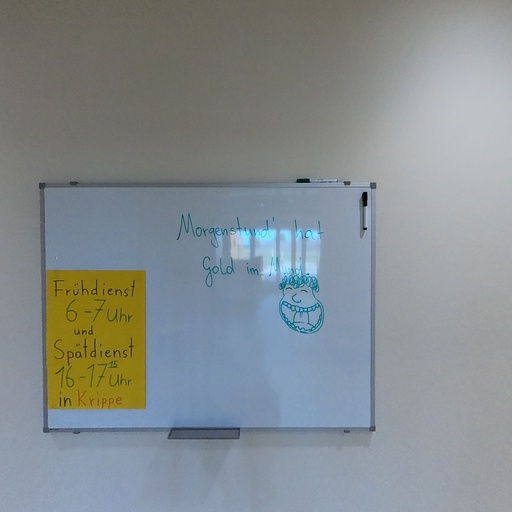 Morgenstund' hat
Gold im Mund.
Frühdienst
6-7 Uhr
und
Spätdienst
16-17 15 Uhr
in Krippe